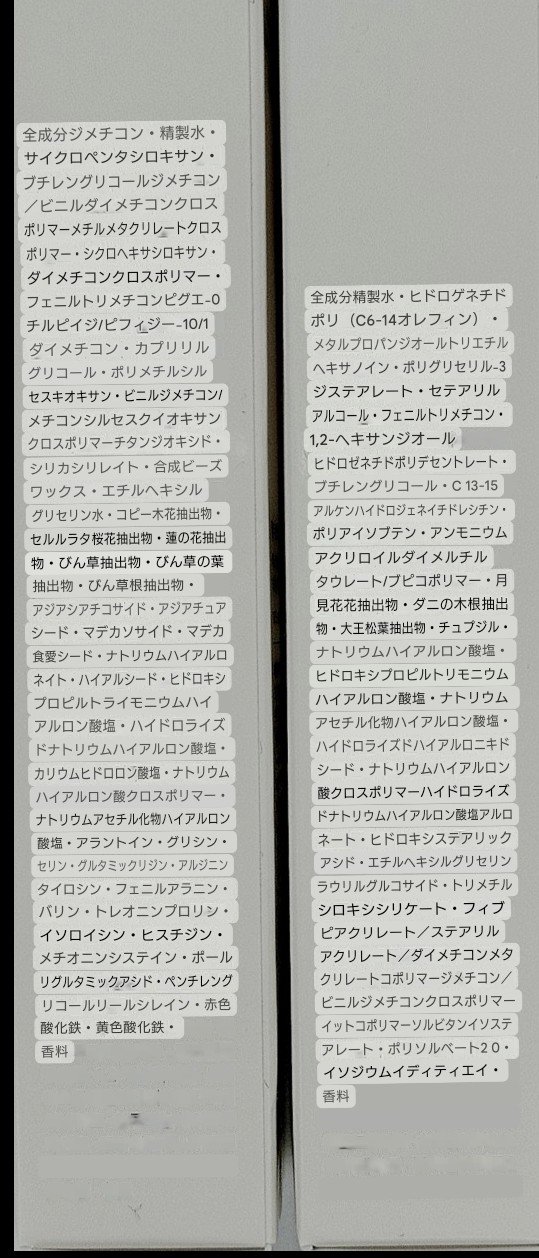 全成分ジメチコン・精製水・
サイクロペンタシロキサン・
ブチレングリコールジメチコン
／ビニルダイメチコンクロス
ポリマーメチルメタクリレートクロス
ポリマー・シクロヘキサシロキサン・
ダイメチコンクロスポリマー・
フェニルトリメチコンピグエ-0
チルピイジ/ピフィジー-10/1
ダイメチコン・カプリリル
グリコール・ポリメチルシル
セスキオキサン・ビニルジメチコン/
メチコンシルセスクイオキサン
クロスポリマーチタンジオキシド・
シリカシリレイト・合成ビーズ
ワックス・エチルヘキシル
グリセリン水・コピー木花抽出物・
セルルラタ桜花抽出物・蓮の花抽出
物・びん草抽出物・びん草の葉
抽出物・びん草根抽出物・
アジアシアチコサイド・アジアチュア
シード・マデカソサイド・マデカ
食愛シード・ナトリウムハイアルロ
ネイト・ハイアルシード・ヒドロキシ
プロピルトライモニウムハイ
アルロン酸塩・ハイドロライズ
ドナトリウムハイアルロン酸塩・
カリウムヒドロロン酸塩・ナトリウム
ハイアルロン酸クロスポリマー・
ナトリウムアセチル化物ハイアルロン
酸塩・アラントイン・グリシン・
セリン・グルタミックリジン・アルジニン
タイロシン・フェニルアラニン・
バリン・トレオニンプロリン・
イソロイシン・ヒスチジン・
メチオニンシステイン・ポール
リグルタミックアシド・ペンチレング
リコールリールシレイン・赤色
酸化鉄・黄色酸化鉄・
香料
全成分精製水・ヒドロゲネチド
ポリ（C6-14オレフィン）・
メタルプロパンジオールトリエチル
ヘキサノイン・ポリグリセリル-3
ジステアレート・セテアリル
アルコール・フェニルトリメチコン・
1,2-ヘキサンジオール
ヒドロゼネチドポリデセントレート・
ブチレングリコール・C 13-15
アルケンハイドロジェネイチドレシチン・
ポリアイソブテン・アンモニウム
アクリロイルダイメルチル
タウレート/ブピコポリマー・月
見花花抽出物・ダニの木根抽出
物・大王松葉抽出物・チュプジル・
ナトリウムハイアルロン酸塩・
ヒドロキシプロピルトリモニウム
ハイアルロン酸塩・ナトリウム
アセチル化物ハイアルロン酸塩・
ハイドロライズドハイアルロニキド
シード・ナトリウムハイアルロン
酸クロスポリマーハイドロライズ
ドナトリウムハイアルロン酸塩アルロ
ネート・ヒドロキシステアリック
アシド・エチルヘキシルグリセリン
ラウリルグルコサイド・トリメチル
シロキシシリケート・フィブ
ピアクリレート／ステアリル
アクリレート／ダイメチコンメタ
クリレートコポリマージメチコン／
ビニルジメチコンクロスポリマー
イットコポリマーソルビタンイソステ
アレート・ポリソルベート2 0・
イソジウムイディティエイ・
香料